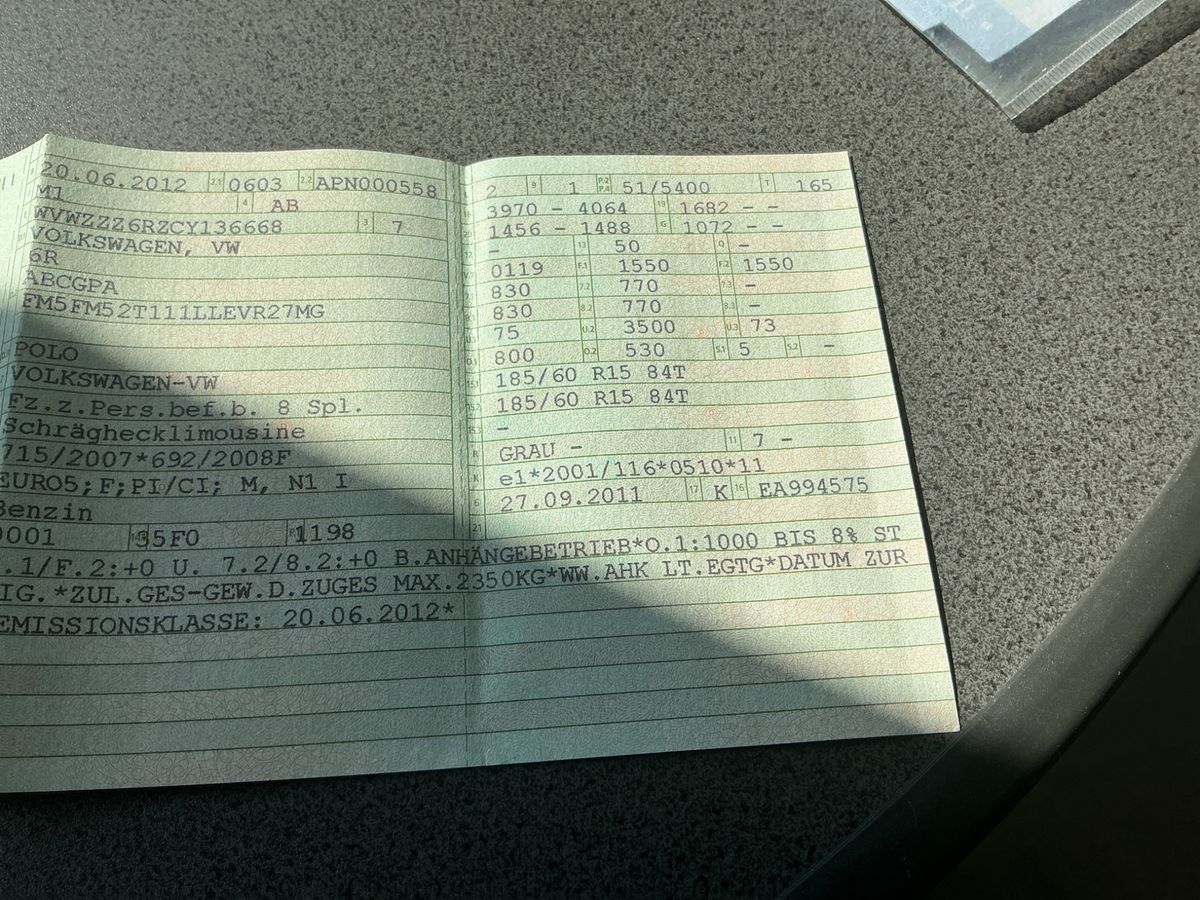 20.06.2012 2.1 0603 2.2 APN000558
M1 4 AB
WVWZZZ6RZCY136668 3 7
VOLKSWAGEN, VW
6R
ABCGPA
FM5FM52T111LLEVR27MG
POLO
VOLKSWAGEN-VW
Fz.z.Pers.bef.b. 8 Spl.
Schräghecklimousine
715/2007*692/2008F
EURO5;F;PI/CI; M, N1 I
Benzin
0001 35F0 1198
2 9 1 P.2 P.4 51/5400 T 165
3970 - 4064 19 1682 - -
1456 - 1488 G 1072 - -
- 13 50 Q -
0119 F.1 1550 F.2 1550
830 7.2 770 7.3 -
830 8.2 770 8.3 -
75 U.2 3500 U.3 73
800 O.2 530 S.1 5 S.2 -
185/60 R15 84T
185/60 R15 84T
-
R GRAU - 11 7 -
K e1*2001/116*0510*11
6 27.09.2011 17 K 16 EA994575
21
.1/F.2:+0 U. 7.2/8.2:+0 B.ANHÄNGEBETRIEB*O.1:1000 BIS 8% ST
IG.*ZUL.GES-GEW.D.ZUGES MAX.2350KG*WW.AHK LT.EGTG*DATUM ZUR
EMISSIONSKLASSE: 20.06.2012*